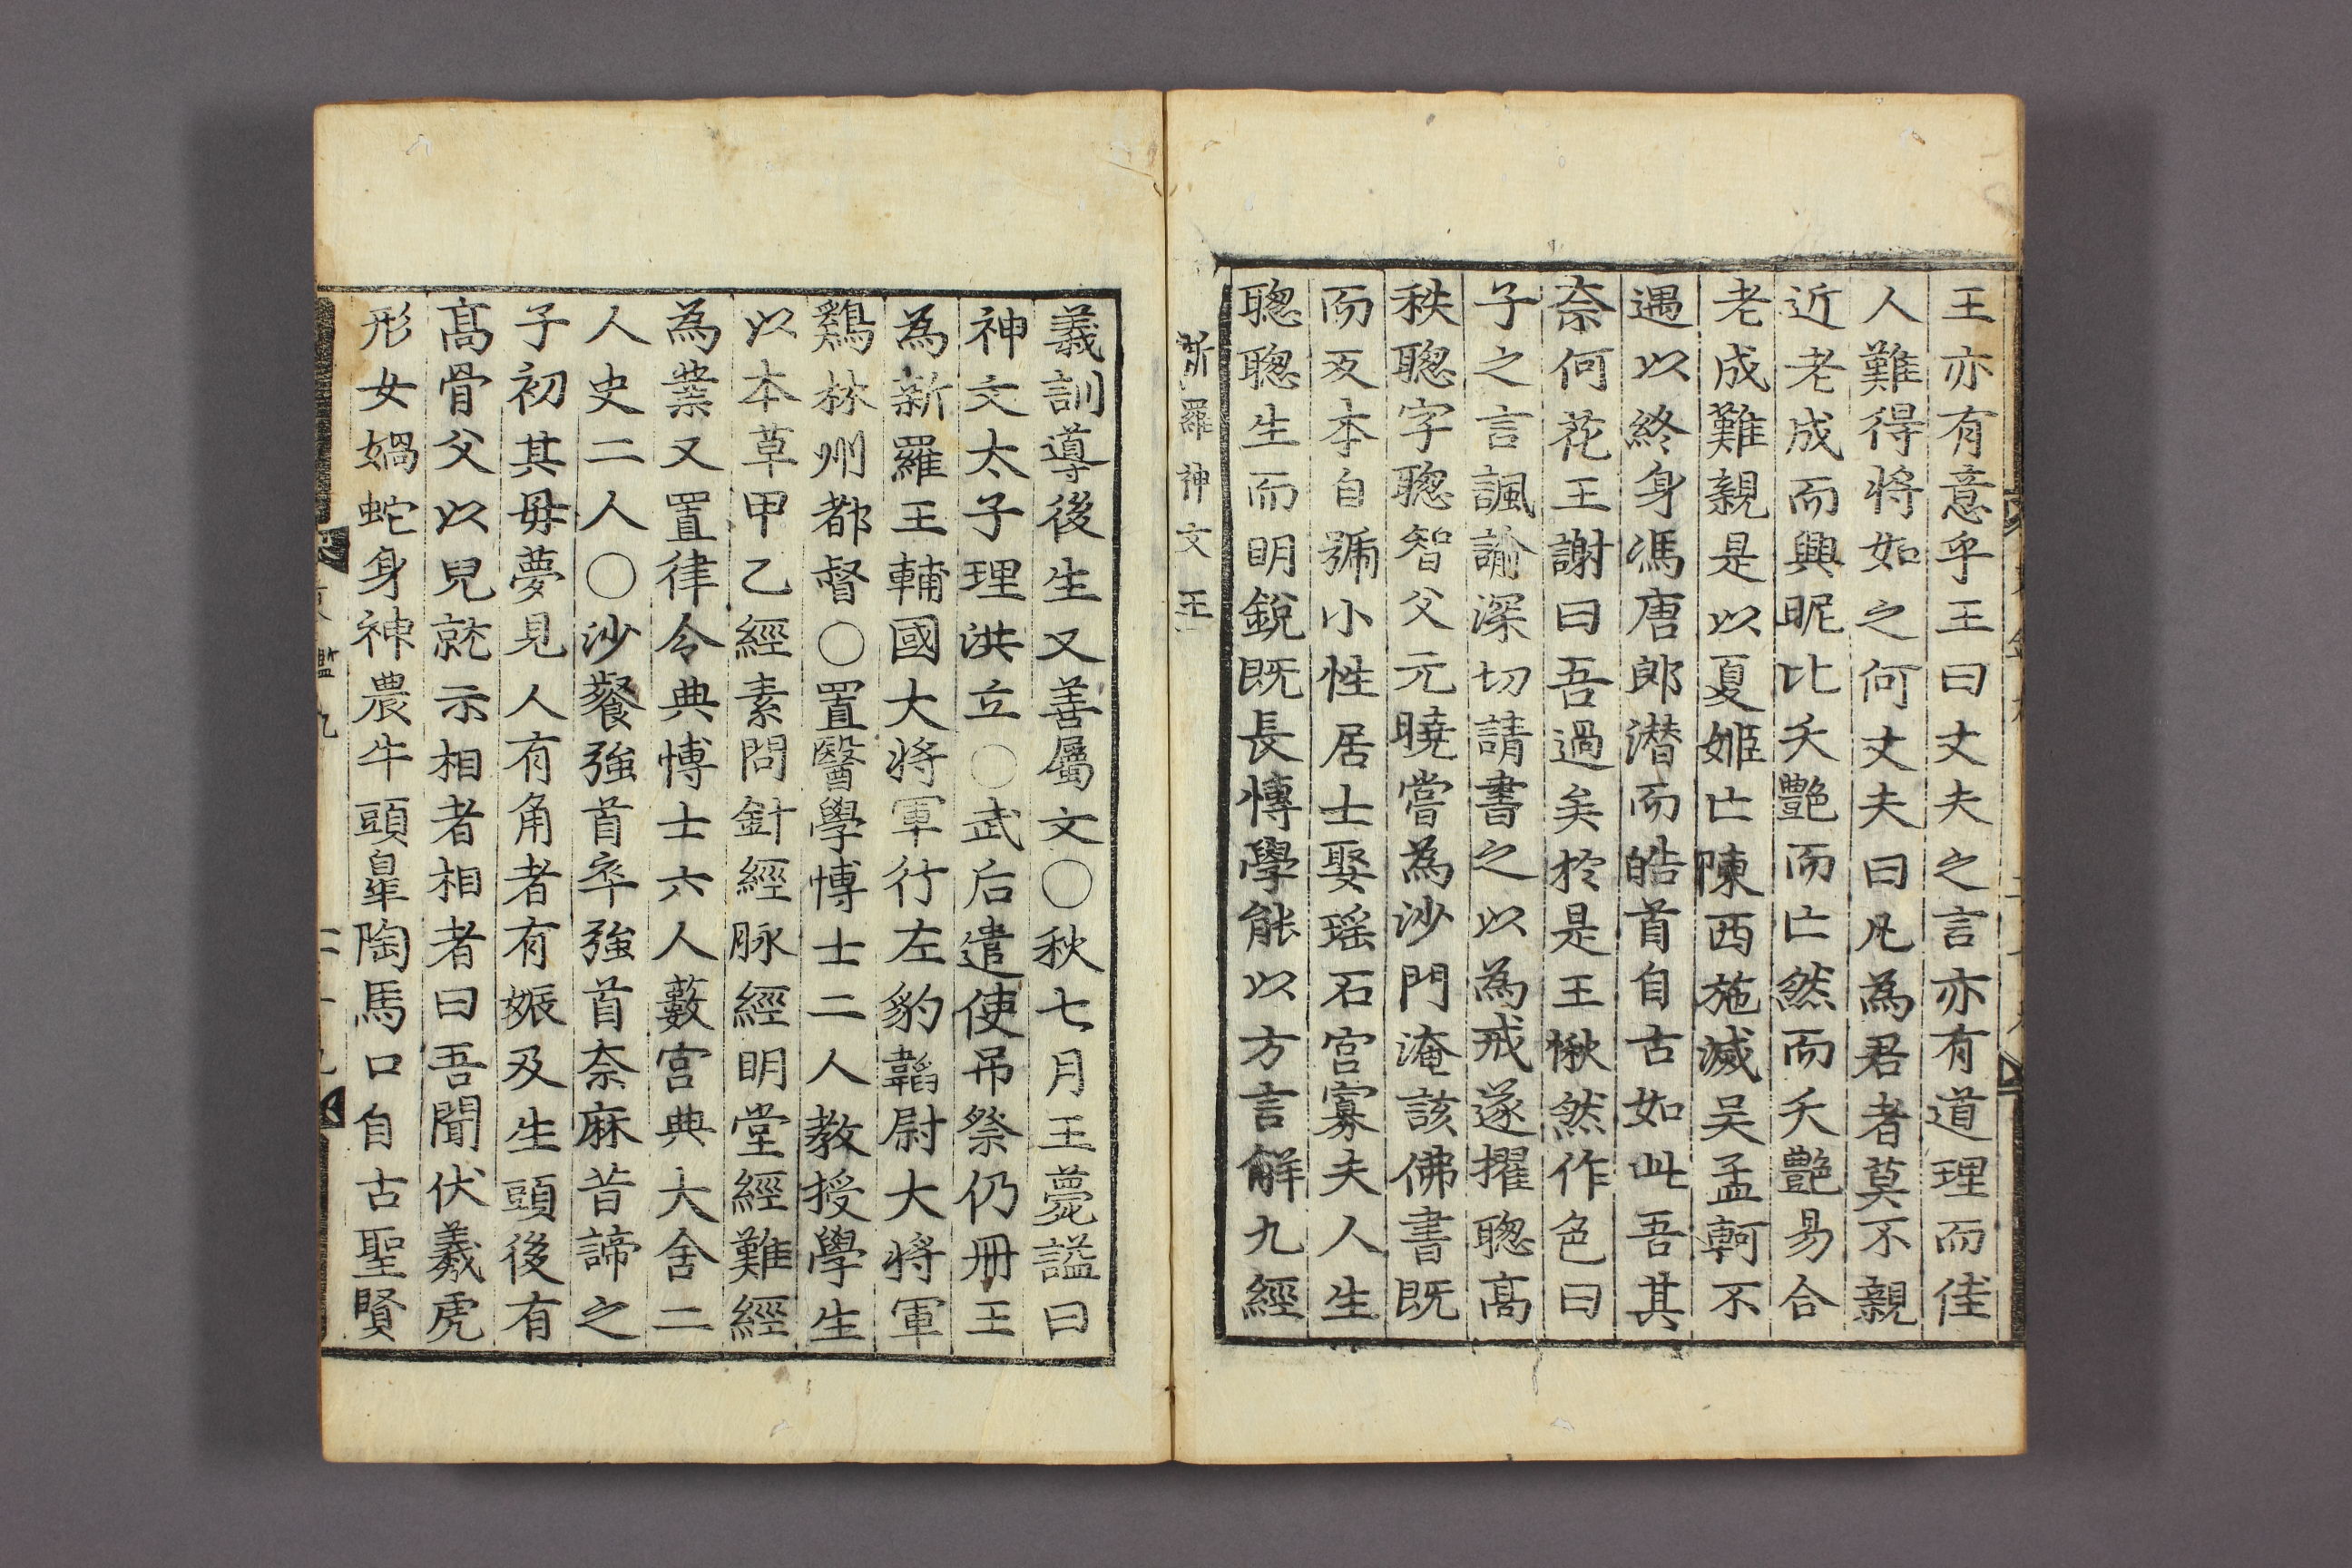 王亦有意乎王曰丈夫之言亦有道理而佳
人難得将如之何丈夫曰凡為君者莫不親
近老成而興昵比夭艶而亡然而夭艶易合
老成難親是以夏姬亡陳西施滅吴孟軻不
遇以終身馮唐郎潜而皓首自古如此吾其
奈何花王謝曰吾過矣於是王愀然作色曰
子之言諷諭深切請書之以為戒遂擢聦高
秩聦字聦智父元曉嘗為沙門淹該佛書既
而反本自號小性居士娶瑶石宫寡夫人生
聦聦生而明銳既長博學能以方言解九經
新羅神文王
義訓導後生又善屬文〇秋七月王薨謚曰
神文太子理洪立〇武后遣使吊祭仍冊王
為新羅王輔國大将軍行左豹韜尉大将軍
鷄林州都督〇置醫學博士二人教授學生
以本草甲乙經素問針經脉經明堂經難經
為業又置律令典博士六人藪宫典大舍二
人史二人〇沙飡強首卒強首奈麻昔諦之
子初其毋夢見人有角者有娠及生頭後有
髙骨父以兒就示相者相者曰吾聞伏羲虎
形女媧蛇身神農牛頭皐陶馬口自古聖賢
鑑九